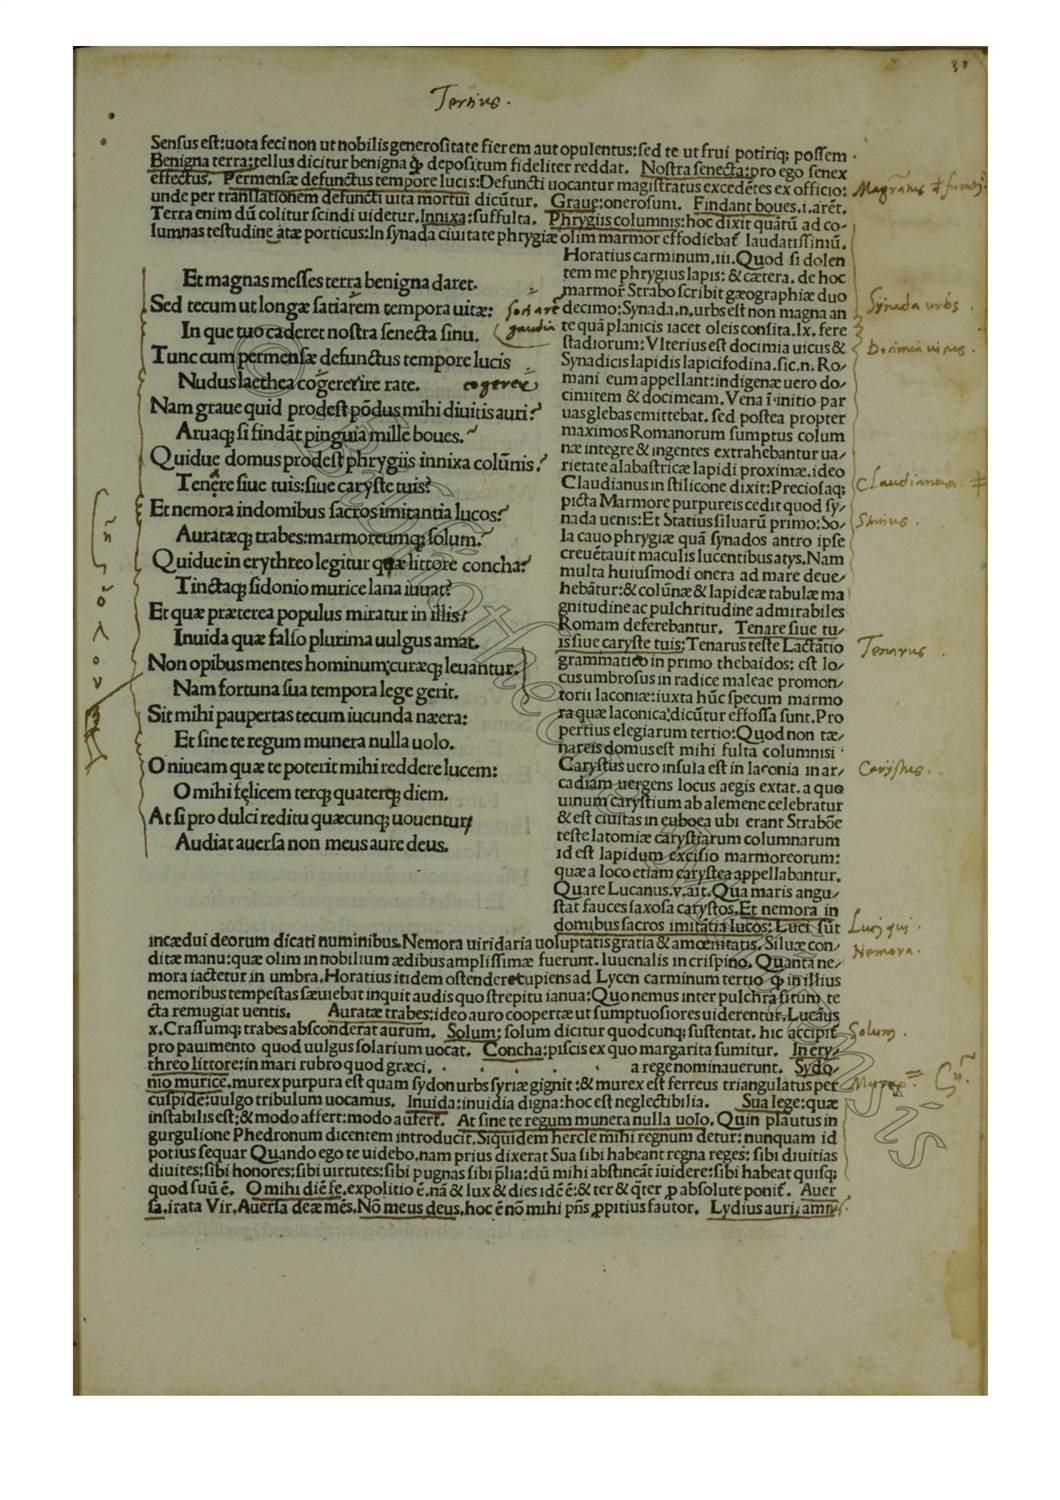 38
Tertius.
Sensus est:uota feci non ut nobilis generositate fierem aut opulentus:sed te ut frui potiriq; possem.
Benigna terra:tellus dicitur benigna ꝙ depositum fideliter reddat. Nostra senecta:pro ego senex
effectus. Permensæ defunctus tempore lucis:Defuncti uocantur magistratus excedẽtes ex officio:
unde per translationem defuncti uita mortui dicũtur. Graue:onerosum. Findant boues.i.arẽt.
Terra enim dũ colitur scindi uidetur.Innixa:suffulta. Phrygiis columnis:hoc dixit quãtũ ad co-
lumnas testudine ãtæ porticus:In synada ciuitate phrygiæ olim marmor effodiebat̃ laudatissimũ.
Et magnas messes terra benigna daret.
Sed tecum ut longæ satiarem tempora uitæ:
In que tuo caderet nostra senecta sinu.
Tunc cum permensæ defunctus tempore lucis
Nudus laethea cogerer ire rate.
Nam graue quid prodest põdus mihi diuitis auri?
Aruaq; si findãt pinguia mille boues.
Quidue domus prodest phrygiis innixa colũnis?
Tenere siue tuis:siue caryste tuis?
Et nemora indomibus sacros imitantia lucos?
Aurataeq; trabes:marmoreumq; solum.
Quidue in erythreo legitur quæ littore concha?
Tinctaq; sidonio murice lana iuuat?
Et quæ præterea populus miratur in illis?
Inuida quæ falso plurima uulgus amat.
Non opibus mentes hominum:curæq; leuantur.
Nam fortuna sua tempora lege gerit.
Sit mihi paupertas tecum iucunda neæra:
Et sine te regum munera nulla uolo.
O niueam quæ te poterit mihi reddere lucem:
O mihi felicem terq; quaterq; diem.
At si pro dulci reditu quæcunq; uouentur
Audiat auersa non meus aure deus.
Horatius carminum.iii.Quod si dolen
tem me phrygius lapis: & cætera. de hoc
marmor̃ Strabo scribit gæographiæ duo
decimo:Synada.n.urbs est non magna an
te quã planicis iacet oleis consita.lx. fere
stadiorum:Vlterius est docimia uicus &
Synadicis lapidis lapicifodina.sic.n. Ro/
mani eum appellant:indigenæ uero do/
cimitem & docimeam. Vena ĩ initio par
uas glebas emittebat. sed postea propter
maximos Romanorum sumptus colum
næ integre & ingentes extrahebantur ua/
rietate alabastricæ lapidi proximæ. ideo
Claudianus in stilicone dixit:Preciosaq;
picta Marmore purpureis cedit quod sy/
nada uenis:Et Statius siluarũ primo:So/
la cauo phrygiæ quã synados antro ipse
creuẽtauit maculis lucentibus atys. Nam
multa huiusmodi onera ad mare deue/
hebãtur:& colũnæ & lapideæ tabulæ ma
gnitudine ac pulchritudine admirabiles
Romam deferebantur. Tenare siue tu/
is siue caryste tuis:Tenarus teste Lactãtio
grammatico in primo thebaidos: est lo/
cus umbrosus in radice maleae promon/
torii laconiæ:iuxta hũc specum marmo
ra quæ laconica dicũtur effossa sunt. Pro
pertius elegiarum tertio:Quod non tæ/
nareis domus est mihi fulta columnis:
Carystus uero insula est in laconia in ar/
cadiam uergens locus aegis extat. a quo
uinum carystium ab alemene celebratur
& est ciuitas in euboea ubi erant Strabõe
teste latomiæ carystiarum columnarum
id est lapidum excisio marmoreorum:
quæ a loco etiam carystea appellabantur.
Quare Lucanus.v.ait. Qua maris angu/
stat fauces saxosa carystos. Et nemora in
domibus sacros imitãtia lucos: Luci sũt
incædui deorum dicati numinibus. Nemora uiridaria uoluptatis gratia & amœnitatis. Siluæ con/
ditæ manu:quæ olim in nobilium ædibus amplissimæ fuerunt. Iuuenalis in crispino. Quanta ne/
mora iactetur in umbra. Horatius itidem ostendere cupiens ad Lycen carminum tertio ꝙ in illius
nemoribus tempestas sæuiebat inquit audis quo strepitu ianua:Quo nemus inter pulchra situm te
cta remugiat uentis. Auratæ trabes:ideo auro coopertæ ut sumptuosiores uiderentur. Lucãus
x. Crassumq; trabes absconderat aurum. Solum: solum dicitur quodcunq; sustentat. hic accipit̃
pro pauimento quod uulgus solarium uocat. Concha:piscis ex quo margarita sumitur. In ery/
threo littore:in mari rubro quod græci. a rege nominauerunt. Sydo/
nio murice.murex purpura est quam sydon urbs syriæ gignit:& murex est ferreus triangulatus per
cuspide:uulgo tribulum uocamus. Inuida:inuidia digna:hoc est neglectibilia. Sua lege:quæ
instabilis est:& modo affert:modo aufert. At sine te regum munera nulla uolo. Quin plautus in
gurgulione Phedronum dicentem introducit. Siquidem hercle mihi regnum detur: nunquam id
potius sequar Quando ego te uidebo.nam prius dixerat Sua sibi habeant regna reges: sibi diuitias
diuites:sibi honores:sibi uirtutes: sibi pugnas sibi p̃lia: dũ mihi abstineãt iuidere:sibi habeat quisq;
quod suũ ẽ. O mihi diẽ fe.expolitio ẽ.nã & lux & dies idẽ ẽ:& ter & q̃ter ꝓ absolute ponit̃. Auer
sa.irata Vir. Auersa deæ mẽs. Nõ meus deus.hoc ẽ nõ mihi pñs ꝓpitius fautor. Lydius auri: amn
sociare
gaudia
cogerer
Synada urbs
Claudianus.
Statius.
Tenarus
Carystus.
Luci qui.
Nemora.
Solum.
Murex